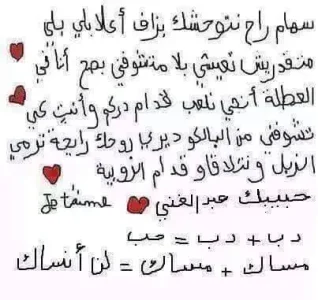 سهام راح نتوحشك بزاف أعلابلي بلي
متقدريش تعيشي بلا متشوفي بصح أنا في
العطلة أنجي نلعب قدام داركم وأنتي كي
تشوفي من البالكو ديري روحك رايحة ترمي
الزبل ونتلاقاو قدام الزوبية
حبيبك عبد الغني Je t'aime
دب + دب = حب
مساك + مساك = لن أنساك